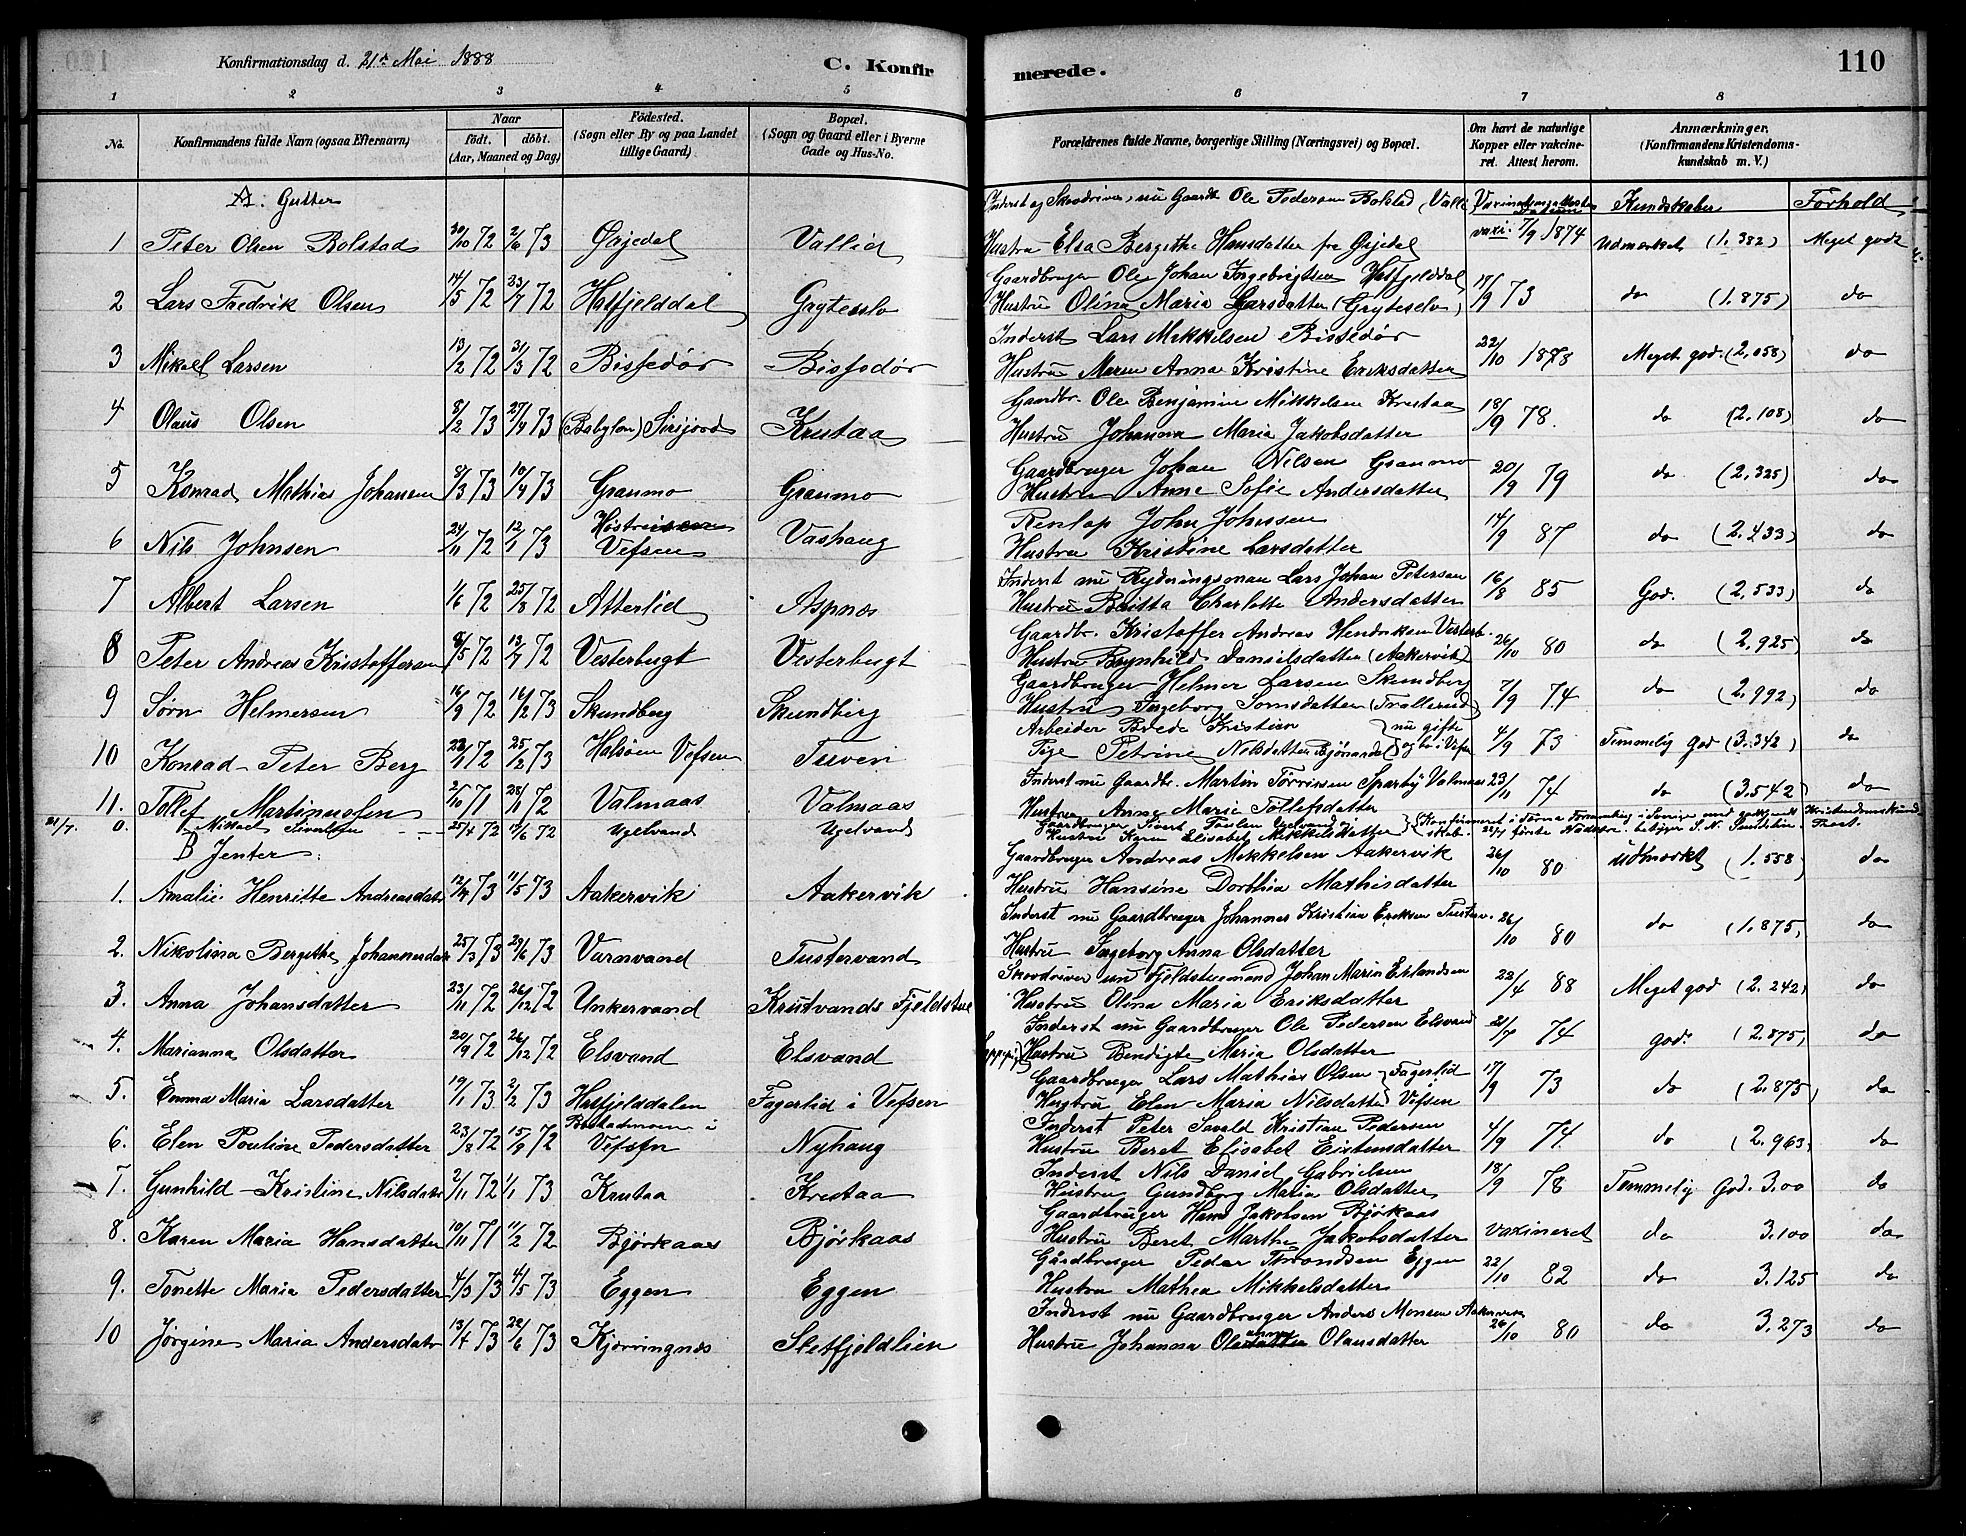 Konfirmationsdag d. 21de Mai 1888
C. Konfirmerede.
110
1 2 3 4 5 6 7 8
No.
Konfirmandens fulde Navn (ogsaa Efternavn)
Naar
födt. döbt.
(Aar, Maaned og Dag)
Födested.
(Sogn eller By og paa Landet tillige Gaard)
Bopæl.
(Sogn og Gaard eller i Byerne Gade og Hus-No.
Forældrenes fulde Navne, borgerlige Stilling (Næringsvei) og Bopæl.
Om havt de naturlige Kopper eller vakcineret. Attest herom.
Anmærkninger.
(Konfirmandens Kristendomskundskab m. V.)
A. Gutter
Inderst og Skovdriver, nu Gaardb. Ole Pedersen Bolstad
Kundskaber Forhold
1 Peter Olsen Bolstad 20/10 72 2/6 73 Gajedal Vallid Hustru Elsa Bergitte Hansdatter fra Gajedal vaxi. 7/9 1874 Udmærket (1.382) Meget godt
Gaardbruger Ole Johan Ingebrigtsen Hatfjelddal
2 Lars Fredrik Olsen 14/5 72 23/7 72 Hatfjelddal Grytesslo Hustru Olina Maria Larsdatter (Gryteselv) 17/9 73 do (1.875) do
Inderst Lars Mikkelsen Bissedör
3 Mikael Larsen 13/2 72 31/3 72 Bissedör Bissedör Hustru Maren Anna Kristine Eriksdatter 22/10 1878 Meget god. (2,058) do
Gaardbr. Ole Benjamine Mikkelsen Krutaa
4 Olaus Olsen 8/2 73 27/4 73 (Babylon) Susijord Krutaa Hustru Johanna Maria Jakobsdatter 18/9 78. do (2.108) do
Gaardbruger Johan Nilsen Granmo
5 Konrad Mathias Johansen 8/3 73 10/4 73 Granmo Granmo Hustru Anne Sofie Andersdatter 20/9 79 do (2,325) do
Renlap John Johnsen
6 Nils Johnsen 24/11 72 12/1 73 Vefsen Vashaug Hustru Kristine Larsdatter 14/9 87 do (2.433) do
Inderst nu Rydningsman Lars Johan Petersen
7 Albert Larsen 1/6 72 25/8 72 Atterlid Aspnes Hustru Britta Charlotte Andersdatter 16/8 85 God. (2,533) do
Gaardbr. Kristoffer Andreas Hendriksen Vesterb.
8 Peter Andreas Kristoffersen 8/5 72 13/7 72 Vesterbugt Vesterbugt Hustru Brynhild Danielsdatter (Aakervik) 26/10 80 do (2,925) do
Gaardbruger Helmer Larsen Skundberg
9 Sörn Helmersen 16/9 72 16/2 73 Skundberg Skundberg Hustru Ingeborg 7/9 74 do (2.992) do
Arbeider Brede Kristian nu gifte
10 Konrad Peter Berg 72 25/2 73 Halsöen Vefsen Tuven Pige Petrine Nilsdatter og bo i Vefsn 4/9 73 Temmelig god (3.342) do
Inderst nu Gaardbr. Martin Valmaas
11. Tollef Martinussen 2/10 71 28/1 72 Valmaas Valmaas Hustru Anne Marie Tollefsdatter 23/11 74 do (3.542) do
21/7. 0. Mikael Sivertsen 25/4 72 17/6 72 Ugelvand Ugelvand Hustru Karen Elisabet Mikkelsdatter
B Jenter:
Gaardbruger Andreas Mikkelsen Aakervik
1. Amalie Henritte Andreasdatr 12/4 73 11/5 73 Aakervik Aakervik Hustru Hansine Dorthia Mathisdatter 26/10 80 udmærket (1.558) do
Inderst nu Gaardbruger Johannes Kristian Eriksen Tusterv.
2. Nikolina Bergitte Johannesdatr 25/3 73 29/6 73 Varnvand Tustervand Hustru Ingeborg Anna Olsdatter 26/10 80 do (1.875) do
Skovdriver nu Fjeldstuemand Johan Maria Erlandsen
3. Anna Johansdatter 23/11 72 26/12 72 Unkervand Krutvands Fjeldstue Hustru Olina Maria Eriksdatter 22/4 88 Meget god (2.242) do
Inderst nu Gaardbruger Ole Pedersen Elsvand
4. Marianna Olsdatter 20/9 72 26/12 72 Elsvand Elsvand Hustru Bendigte Maria Olsdatter 21/7 74 god. (2.875) do
Gaardbruger Lars Mathias Olsen Fagerlid
5. Emma Maria Larsdatter 19/1 73 2/2 73 Hatfjelddalen Fagerlid i Vefsen Hustru Elen Maria Nilsdatter Vefsen 17/9 73 do (2.875) do
Inderst Peter Sevald Kristian Pedersen
6. Elen Pouline Pedersdatter 23/8 72 15/9 72 Vefsen Nyhaug Hustru Beret Elisabet Eistensdatter 4/9 74. do (2.963) do
Inderst Nils Daniel Gabrielsen
7. Gunhild Kristine Nilsdatr 2/11 72 1/1 73 Krutaa Krutaa Hustru Gundborg Maria Olsdatter 18/9 78 Temmelig God. 3.00 do
Gaardbruger Hans Jakobsen Björkaas
8. Karen Maria Hansdatter 10/11 71 11/2 72 Björkaas Björkaas Hustru Beret Marthe Jakobsdatter vaxineret do 3.100 do
Gårdbruger Peder Throndsen Eggen
9. Tonette Maria Pedersdatter 4/3 73 4/5 73 Eggen Eggen Hustru Mathea Mikkelsdatter 22/10 82 do 3.125 do
Inderst nu Gaardbruger Anders Monsen Aakervik
10 Jörgine Maria Andersdatr 13/4 73 22/6 73 Kjerringnes Sletfjeldlien Hustru Johanna Olausdatter 26/10 80 do 3.273 do